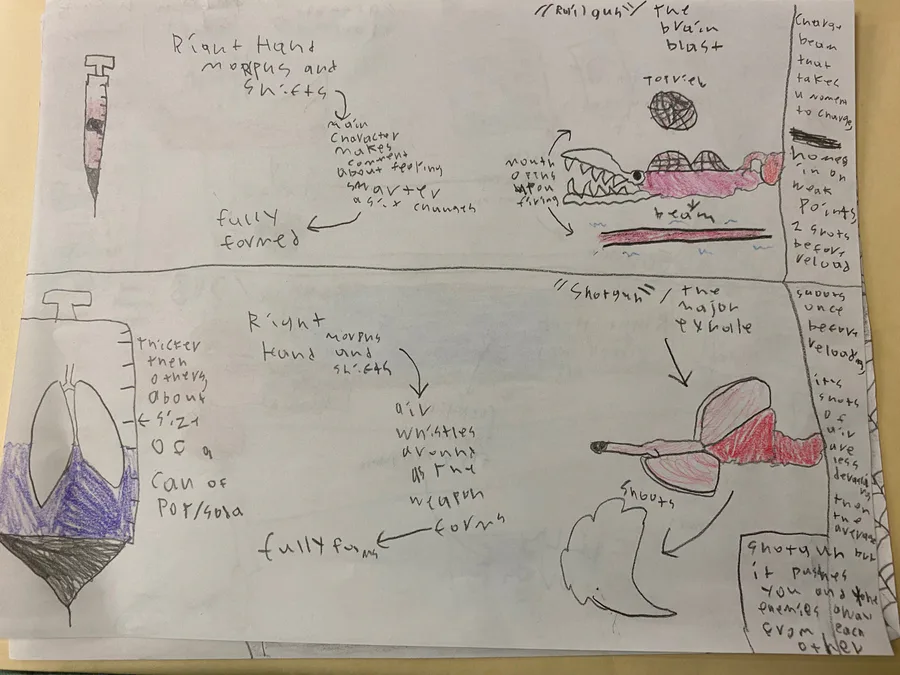 Right Hand
morphs and
shifts
main
character
makes
comment
about feeling
smarter
as it changes
fully
formed
"Railgun" / the
brain
blast
top view
mouth
opens
upon
firing
beam
Charge
beam
that
takes
a moment
to charge
homes
in on
weak
points
2 shots
before
reload
thicker
then
others,
about
size
of a
can of
pop/soda
Right
Hand morphs
and
shifts
air
whistles
around
as the
weapon
forms
fully forms
"Shotgun" / the
major
exhale
shoots
shoots
once
before
reloading
its
shots
of
air
are
less
then
the
average
shotgun but
it pushes
you and the
enemies away
from each
other